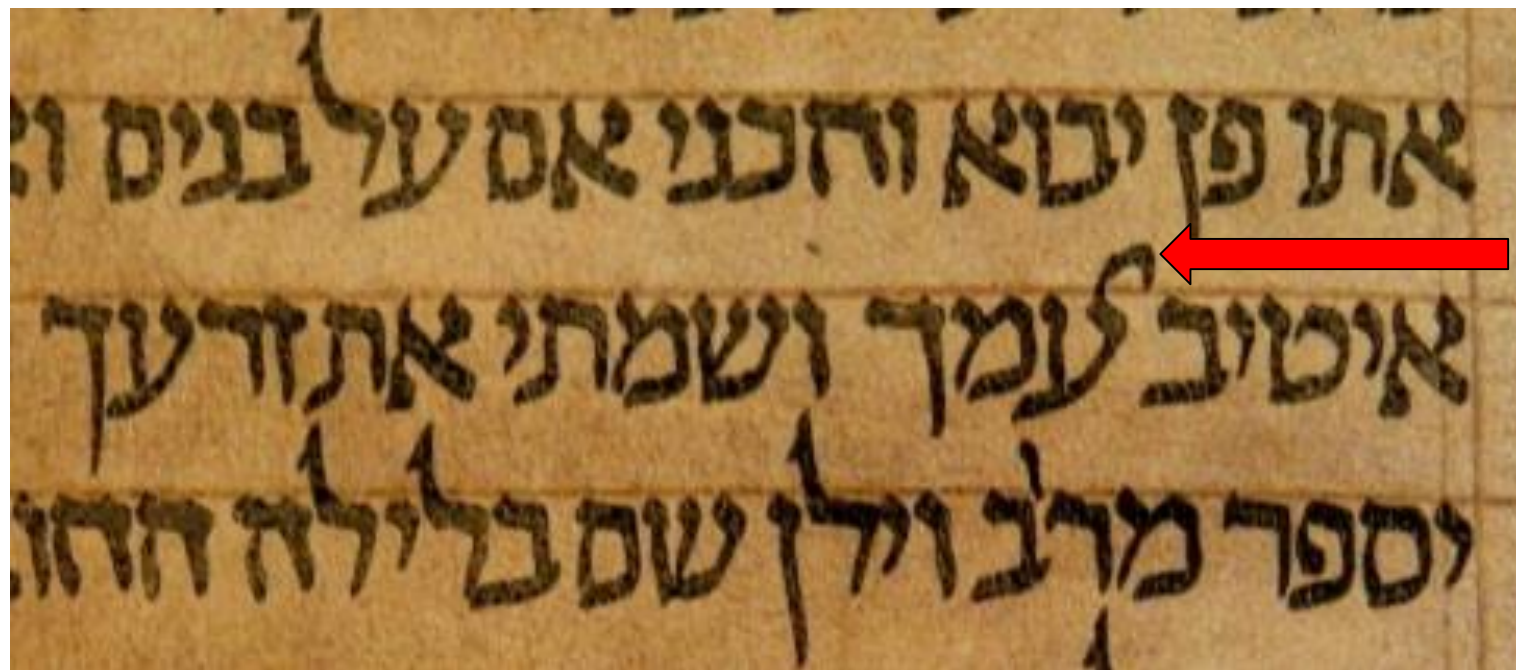 אתו פן יבוא והכני אם על בנים
איטיב עמך ושמתי את זרעך
יספר מרב וילן שם בלילה ההוא